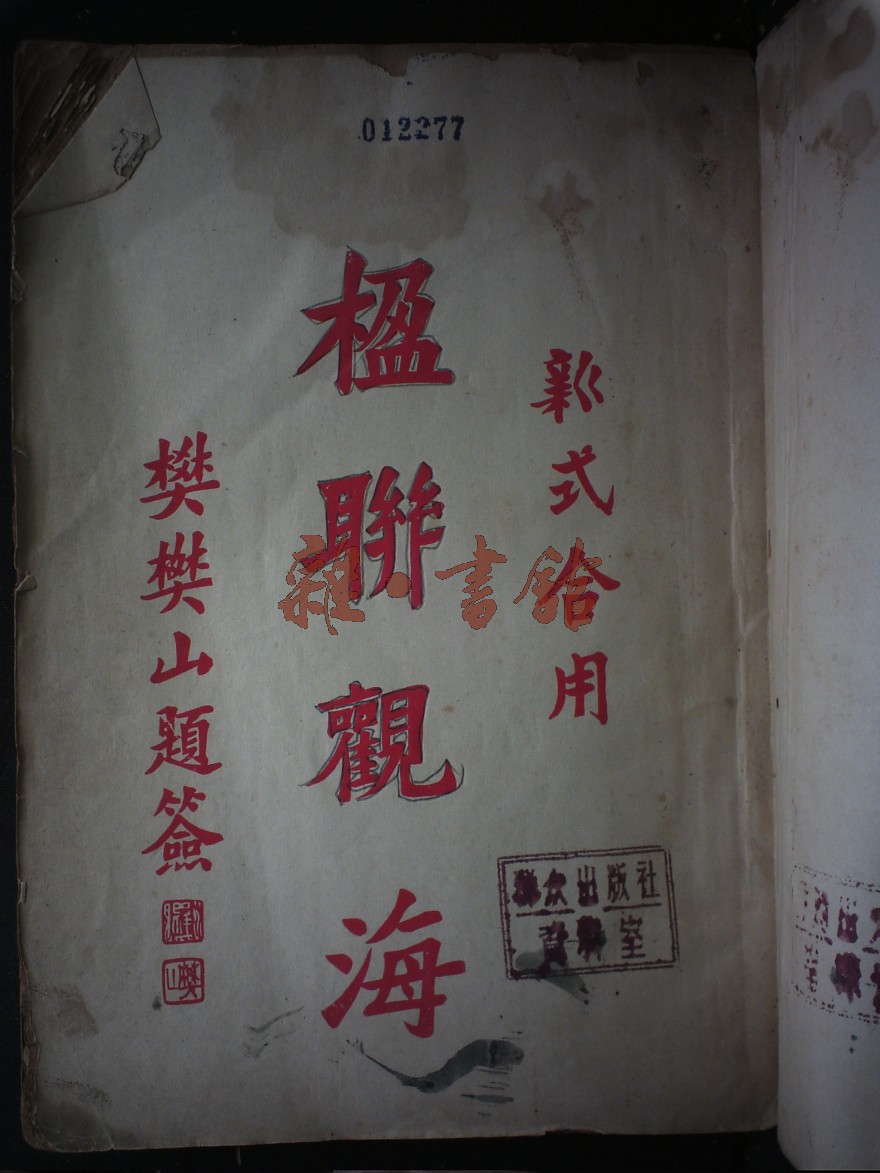 012277
新式合用
楹聯觀海
樊樊山題簽
雜·書館
群众出版社
資料室